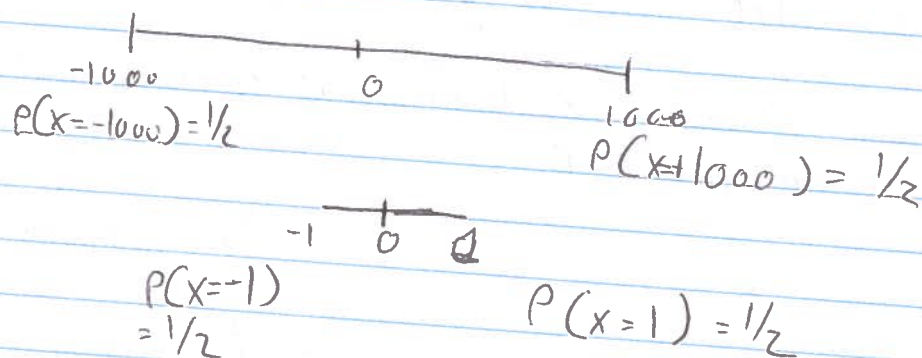 -1000 0 1000
P(x=-1000) = 1/2
P(x=+1000) = 1/2
-1 0 1
P(x=-1)
= 1/2
P(x=1) = 1/2